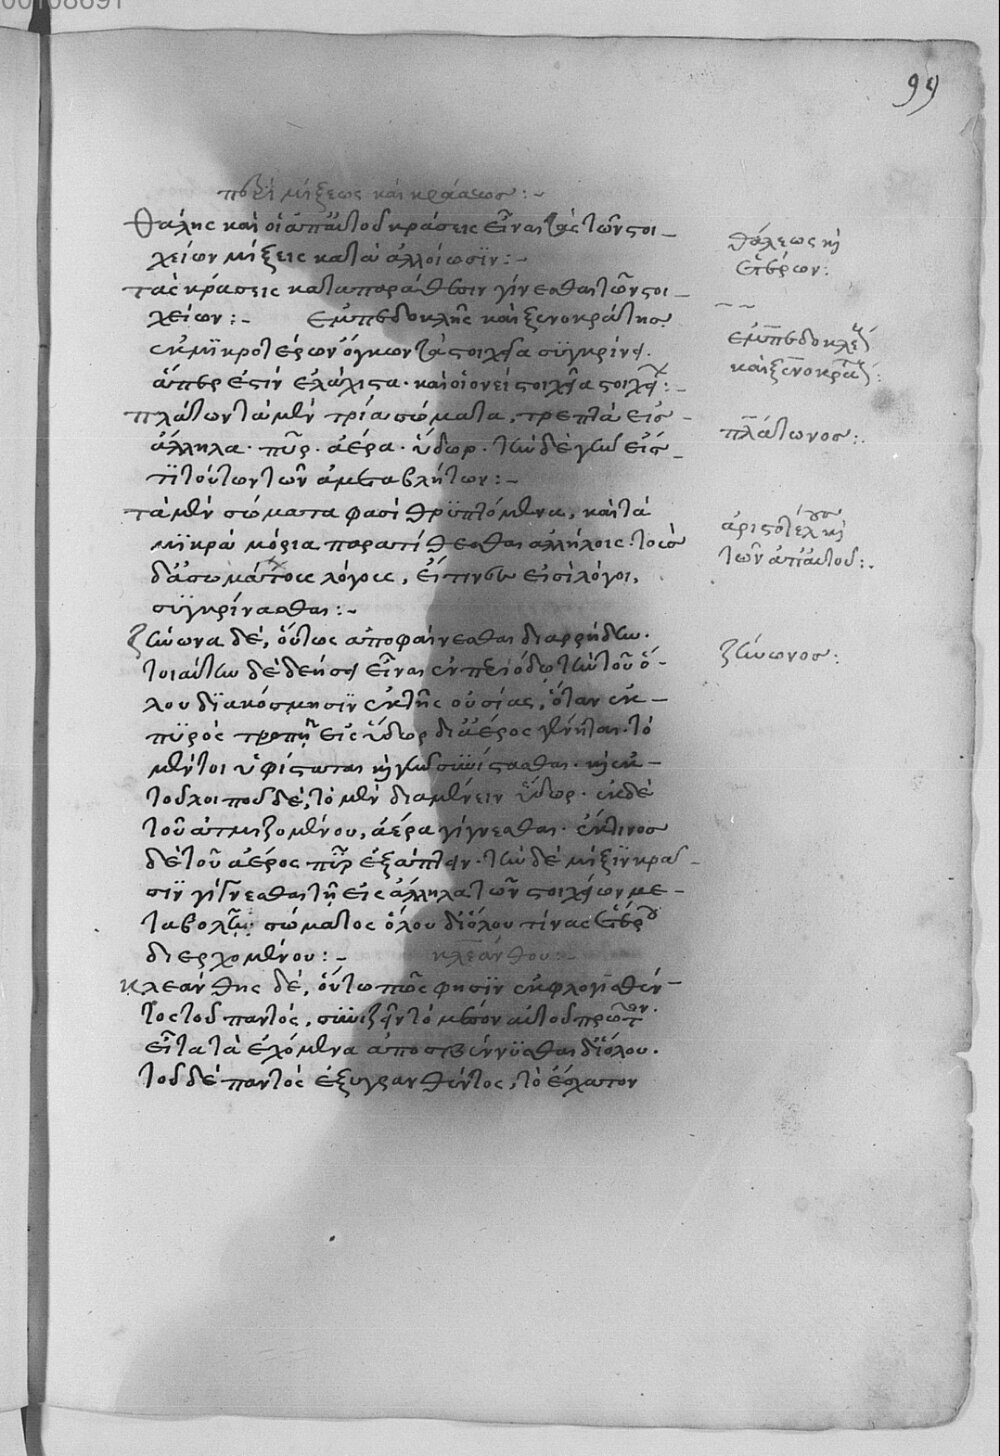 99
περὶ μίξεως καὶ κράσεως:-
θαλῆς καὶ οἱ ἀπ' αὐτοῦ κράσεις εἶναι τὰς τῶν στοι-
χείων μίξεις κατὰ ἀλλοίωσιν:-
θάλεως καὶ
ἑτέρων:
τὰς κράσεις κατὰ παράθεσιν γίνεσθαι τῶν στοι-
χείων:- ἐμπεδοκλῆς καὶ ξενοκράτης
ἐκ μικροτέρων ὄγκων τὰ στοιχεῖα συγκρίνει.
ἅπερ ἐστὶν ἐλάχιστα. καὶ οἱονεὶ στοιχεῖα στοιχείων:-
ἐμπεδοκλέους
καὶ ξενοκράτους:
πλάτων τὰ μὲν τρία σώματα, τρεπτὰ εἰς
ἄλληλα. πῦρ. ἀέρα. ὕδωρ. τὴν δὲ γῆν εἴς
τι τούτων τῶν ἀμεταβλήτων:-
πλάτωνος:.
τὰ μὲν σώματα φασὶ θρυπτόμενα, κατὰ
μικρὰ μόρια παρατίθεσθαι ἀλλήλοις. τοῖσ
δ' ἀσωμάτοις λόγοις, εἴ τινες εἰσὶ λόγοι,
συγκρίνασθαι:-
ἀριστοτέλους καὶ
τῶν ἀπ' αὐτοῦ:.
ζήνωνα δὲ, οὕτως ἀποφαίνεσθαι διαρρήδην.
τοιαύτην δὲ δεήσει εἶναι ἐν περιόδω τὴν τοῦ ὅ-
λου διακόσμησιν ἐκ τῆς οὐσίας, ὅταν ἐκ-
πυρὸς τροπὴ εἰς ὕδωρ δι' ἀέρος γένηται. τὸ
μέν τοι ὑφίστασθαι καὶ γῆν συνίστασθαι. καὶ ἐκ-
τοῦ λοιποῦ δὲ, τὸ μὲν διαμένειν ὕδωρ. ἐκ δὲ
τοῦ ἀτμιζομένου, ἀέρα γίγνεσθαι. ἔκ τινος
δὲ τοῦ ἀέρος πῦρ ἐξάπτειν. τὴν δὲ μίξιν κρᾶ-
σιν γίγνεσθαι τῇ εἰς ἄλληλα τῶν στοιχείων με-
ταβολῇ, σώματος ὅλου δι' ὅλου τινὸς ἑτέρου
διερχομένου:- κλεάνθου:-
ζήνωνος:
κλεάνθης δὲ, οὕτω πῶς φησὶν ἐκφλογισθέν-
τος τοῦ παντὸς, συνίζειν τὸ μέσον αὐτοῦ πρῶτον.
εἶτα τὰ ἐχόμενα ἀποσβέννυσθαι δι' ὅλου.
τοῦ δὲ παντὸς ἐξυγρανθέντος, τὸ ἔσχατον